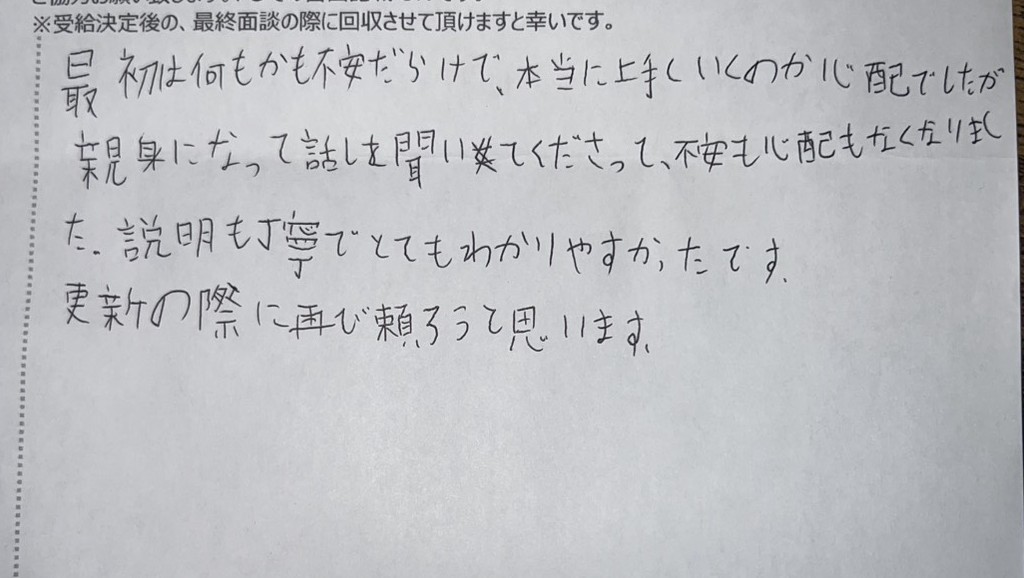 ※受給決定後の、最終面談の際に回収させて頂けますと幸いです。
最初は何もかも不安だらけで、本当に上手くいくのか心配でしたが
親身になって話しを聞いてくださって、不安も心配もなくなりまし
た。説明も丁寧でとてもわかりやすかったです。
更新の際に再び頼ろうと思います。